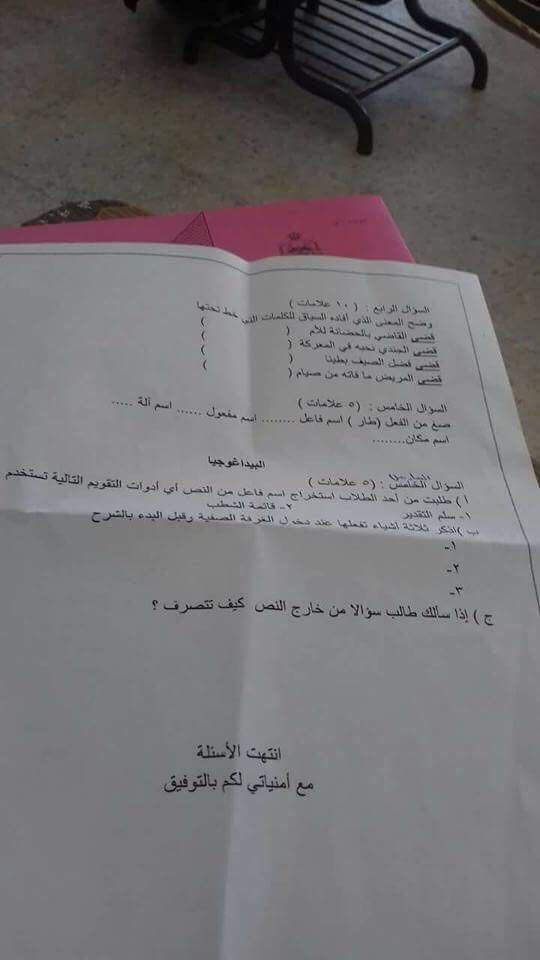 السؤال الرابع : ( ١٠ علامات )
وضح المعنى الذي أفاده السياق للكلمات التي خط تحتها
قضى القاضي بالحضانة للأم ( )
قضى الجندي نحبه في المعركة ( )
قضى فصل الصيف بطيئا ( )
قضى المريض ما فاته من صيام ( )
السؤال الخامس : ( ٥ علامات )
صغ من الفعل ( طار ) اسم فاعل ........ اسم مفعول ...... اسم آلة .....
اسم مكان........
البيداغوجيا
السؤال السادس : ( ٥ علامات )
أ ) طلبت من أحد الطلاب استخراج اسم فاعل من النص أي أدوات التقويم التالية تستخدم
١- سلم التقدير ٢- قائمة الشطب
ب ) اذكر ثلاثة أشياء تفعلها عند دخول الغرفة الصفية وقبل البدء بالشرح
١-
٢-
٣-
ج ) إذا سألك طالب سؤالا من خارج النص كيف تتصرف ؟
انتهت الأسئلة
مع أمنياتي لكم بالتوفيق